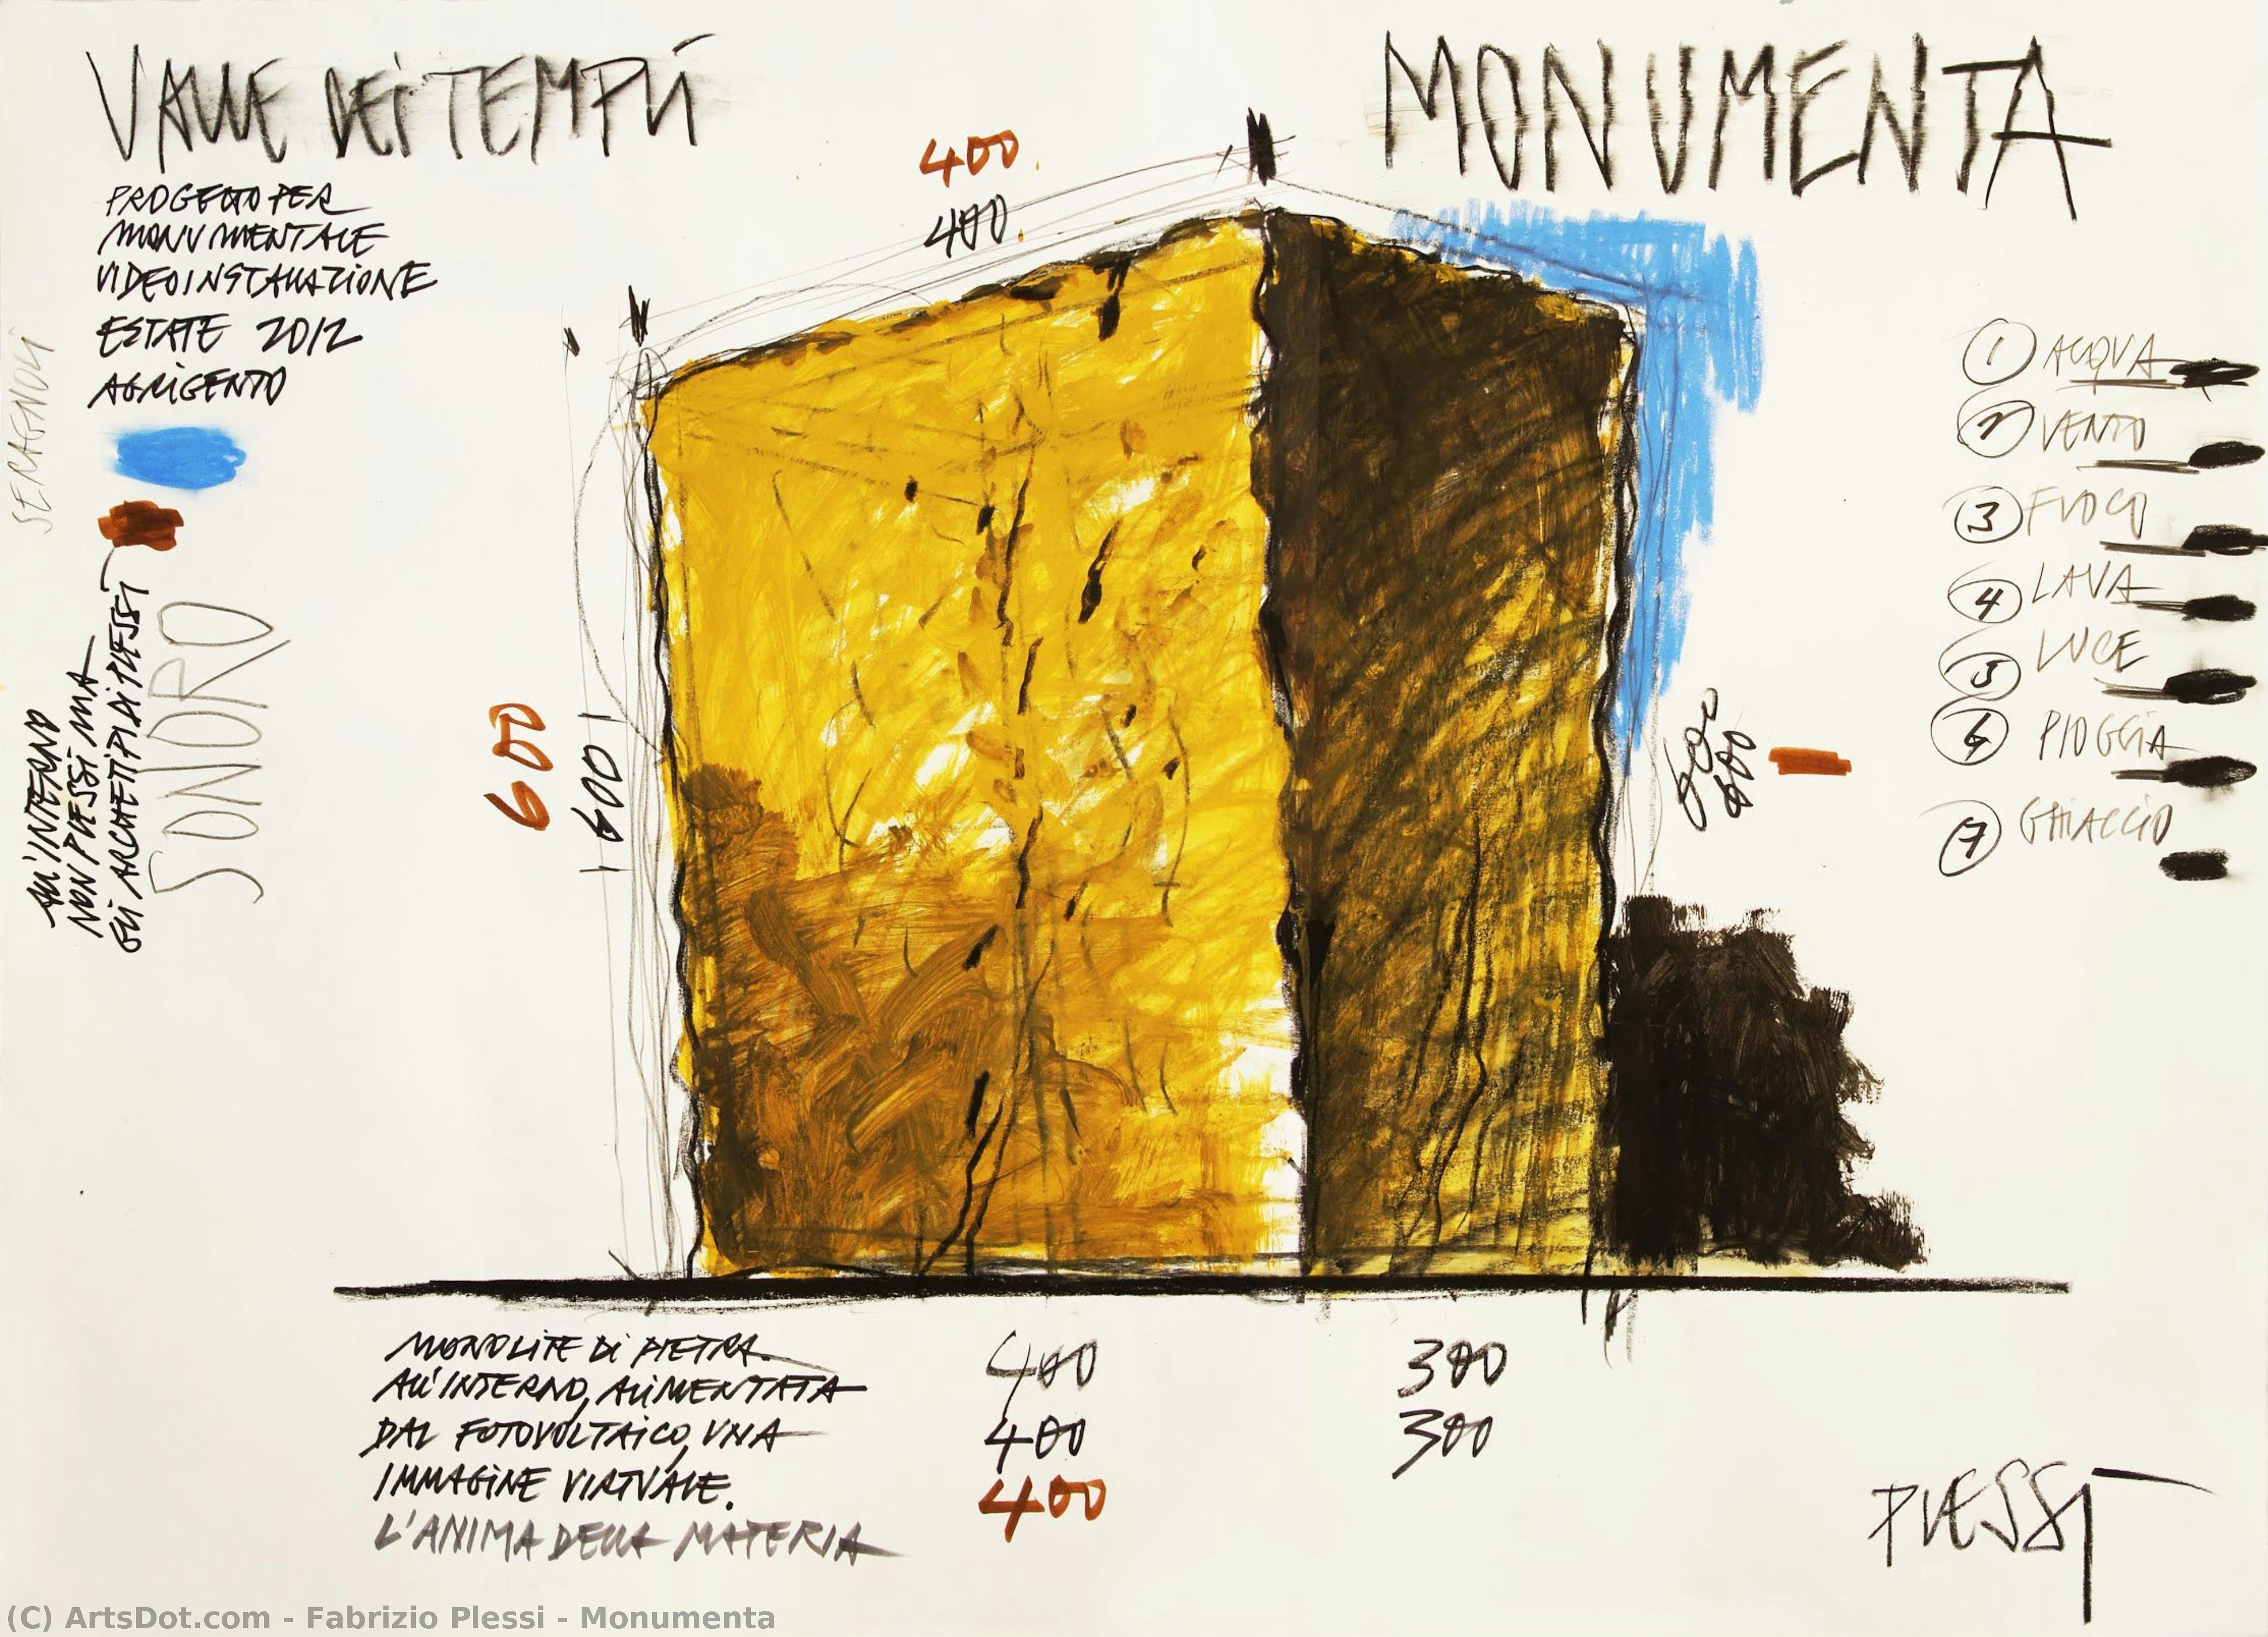 VALLE DEI TEMPLI
MONUMENTA
PROGETTO PER
MONUMENTALE
VIDEOINSTALLAZIONE
ESTATE 2012
AGRIGENTO
SERAGNOLI
ALL'INTERNO
NON PLESSI MA
GLI ARCHETIPI DI PLESSI
SONORO
400
400
600
600
600
600
1 ACQUA
2 VENTO
3 FUOCO
4 LAVA
5 LUCE
6 PIOGGIA
7 GHIACCIO
MONOLITE DI PIETRA.
ALL'INTERNO, ALIMENTATA
DAL FOTOVOLTAICO, UNA
IMMAGINE VIRTUALE.
L'ANIMA DELLA MATERIA
400
400
400
300
300
PLESSI
(C) ArtsDot.com - Fabrizio Plessi - Monumenta